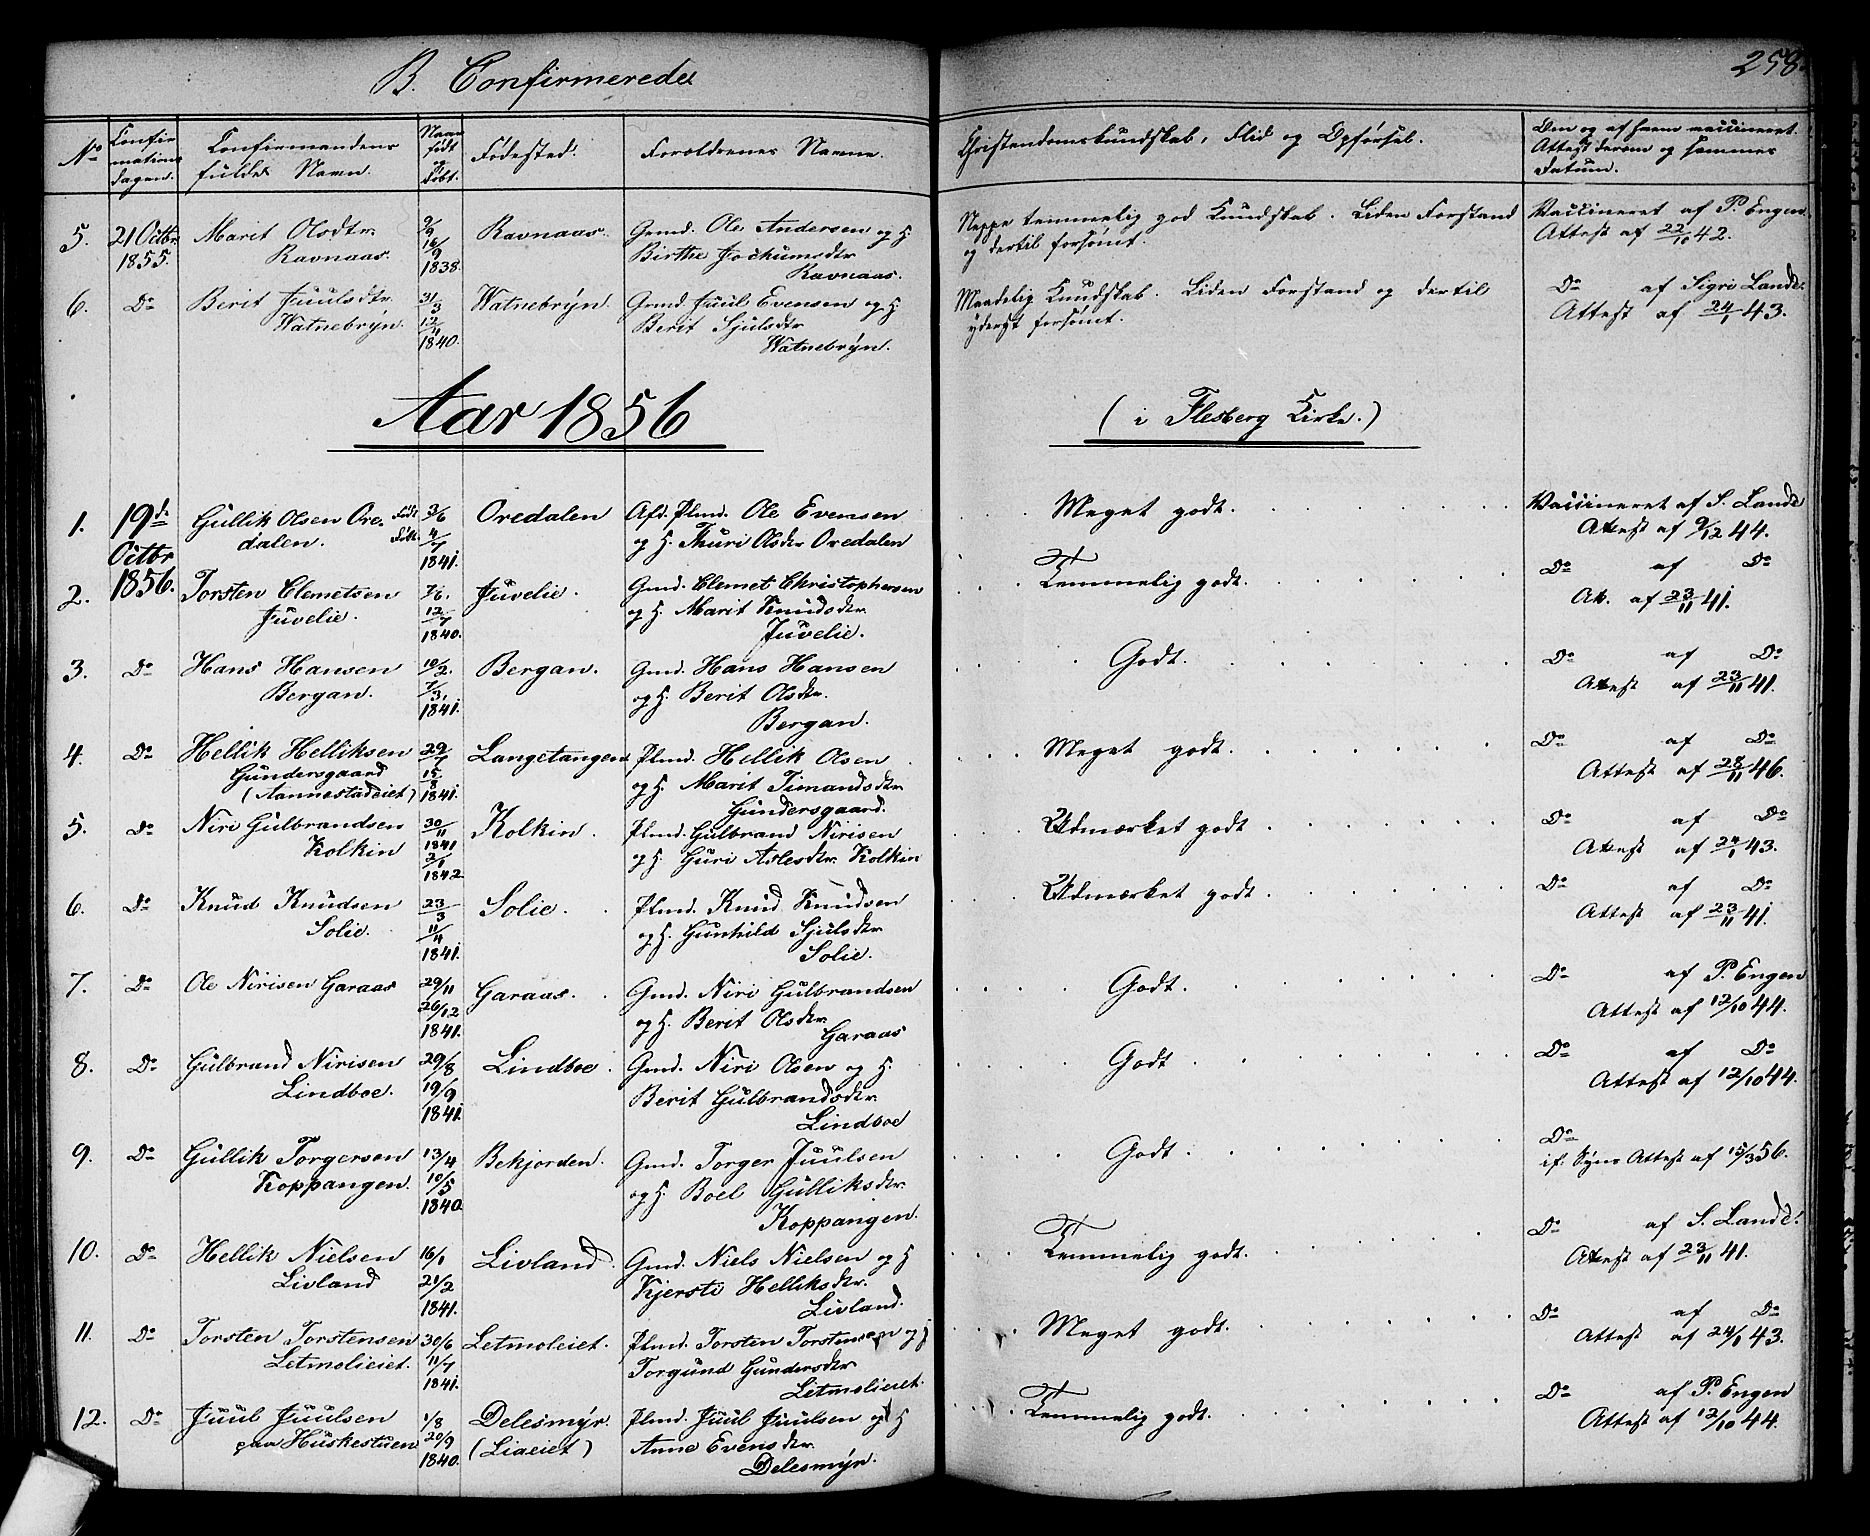 B. Confirmerede
258.
No
Confirmationsdagen.
Confirmandens fulde Navn.
Naar født og døbt.
Fødested.
Forældrenes Navne.
Christendomskundskab, Flid og Opførsel.
Om og af hvem vaccineret. Attest derom og sammes Datum.
5. 21 Octbr 1855. Marit Olsdtr. Ravnaas. 9/9 16/9 1838. Ravnaas. Gmd. Ole Andersen og H. Birthe Jochumsdtr Ravnaas. Neppe temmelig god Kundskab. Liden Forstand og dertil forsømt. Vaccineret af P. Engen. Attest af 22/10 42.
6. Do Berit Juulsdtr. Watnebrÿn. 31/3 12/11 1840. Watnebrÿn. Gmd. Juul Evensen og H. Berit Sjulsdtr Watnebrÿn. Maadelig Kundskab. Liden Forstand og dertil yderst forsømt. Do af Sigri Lande. Attest af 24/1 43.
Aar 1856
(i Flesberg Kirke.)
1. 19d. Octbr 1856. Gullik Olsen Oredalen. Født 3/6 Døbt 4/7 1841. Oredalen Afd. Plmd. Ole Evensen og H. Thuri Olsdtr Oredalen Meget godt. Vaccineret af S. Lande Attest af 9/12 44.
2. Torsten Clemetsen Juvelie. 7/6. 12/7 1840. Juvelie. Gmd. Clemet Christophersen og H. Marit Knudsdtr. Juvelie. Temmelig godt. Do af Do At. af 23/11 41.
3. Do Hans Hansen Bergan. 10/2. 7/3. 1841. Bergan. Gmd. Hans Hansen og H. Berit Olsdtr. Bergan. Godt. Do af Do Attest af 23/11 41.
4. Do Hellik Helliksen Gundersgaard (Aannestadeiet) 29/7 15/8 1841. Langetangen Plmd. Hellik Olsen og H. Marit Timandsdtr Gundersgaard. Meget godt. Do af Do Attest af 28/11 46.
5. Do Niri Gulbrandsen Kolkin 30/11 1841 2/1 1842. Kolkin. Plmd. Gulbrand Nirisen og H. Guri Aslesdtr. Kolkin Udmærket godt Do af Do Attest af 24/1 43.
6. Do Knud Knudsen Solie. 23/3 11/4 1841. Solie. Plmd. Knud Knudsen og H. Gunhild Sjulsdtr Solie. Udmærket godt. Do af Do Attest af 23/11 41.
7. Do Ole Nirisen Garaas 29/11 26/12 1841. Garaas. Gmd. Niri Gulbrandsen og H. Berit Olsdtr. Garaas Godt. Do af P. Engen Attest af 12/10 44.
8. Do Gulbrand Nirisen Lindboe. 29/8 19/9 1841. Lindboe. Gmd. Niri Olsen og H. Berit Gulbrandsdtr. Lindboe Godt Do af Do Attest af 12/10 44.
9. Do Gullik Torgersen Koppangen. 13/4 10/5 1840. Bekjorden. Gmd. Torger Juulsen og H. Boel Gulliksdtr. Koppangen. Godt. Do if. Syns Attest af 15/3 56.
10. Do Hellik Nielsen Livland 16/1 21/2 1841. Livland. Gmd. Niels Nielsen og H Kjersti Helliksdtr. Livland. Temmelig godt. Do af S. Lande. Attest af 23/11 41.
11. Do Torsten Torstensen Letmolieiet. 30/6 11/7 1841. Letmoleiet. Plmd. Torsten Torstensen og H Torgund Gundersdtr Letmolieiet. Meget godt. Do af Do Attest af 24/1 43.
12. Do Juul Juulsen paa Huskestuen 1/8 20/9 1840. Delesmÿr. (Liaeiet) Plmd. Juul Juulsen og H Anne Evensdtr. Delesmÿr. Temmelig godt. Do af P. Engen Attest af 12/10 44.